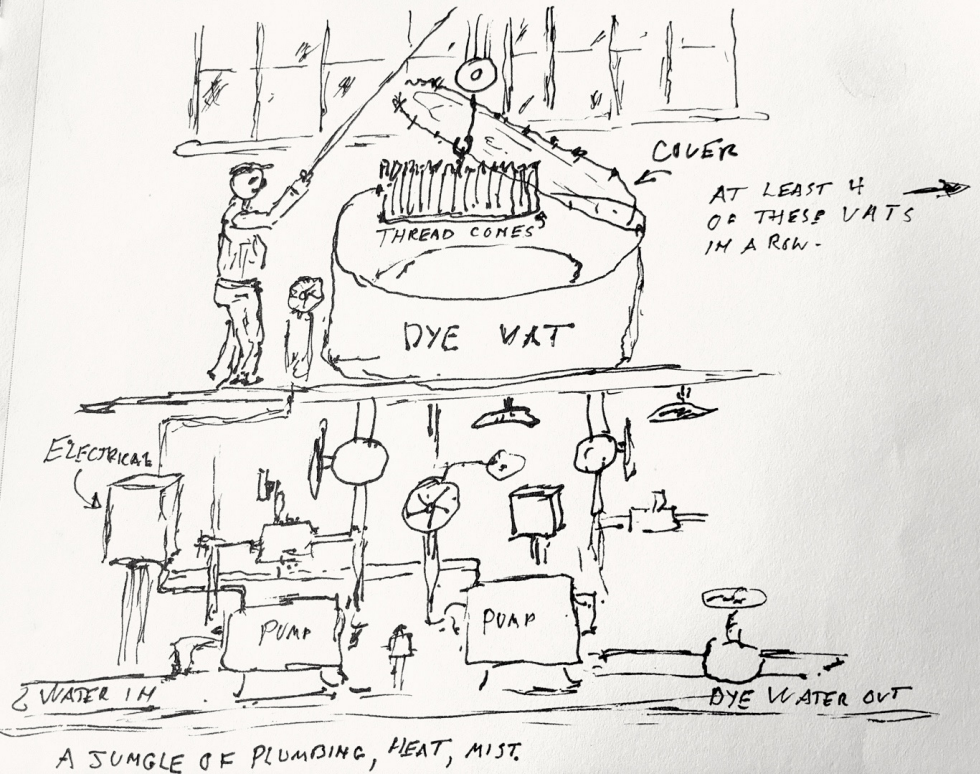 COVER
AT LEAST 4
OF THESE VATS
IN A ROW.
THREAD CONES
DYE VAT
ELECTRICAL
PUMP
PUMP
WATER IN
DYE WATER OUT
A JUNGLE OF PLUMBING, HEAT, MIST.